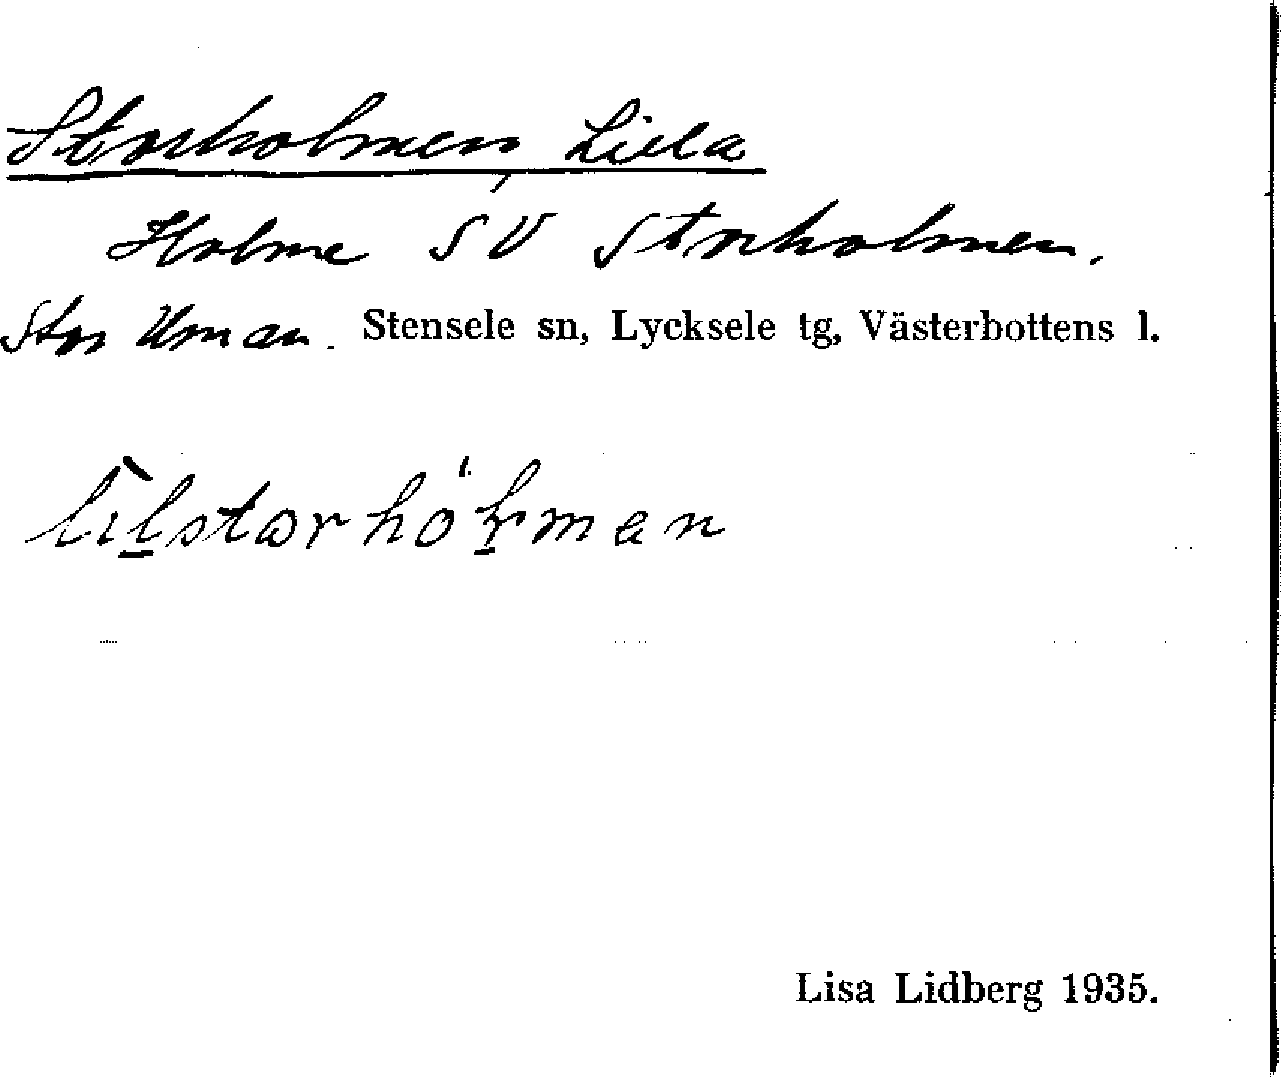 Storholmen, Lilla
Holme SV Storholmen.
Stor Uman. Stensele sn, Lycksele tg, Västerbottens l.
Lisa Lidberg 1935.